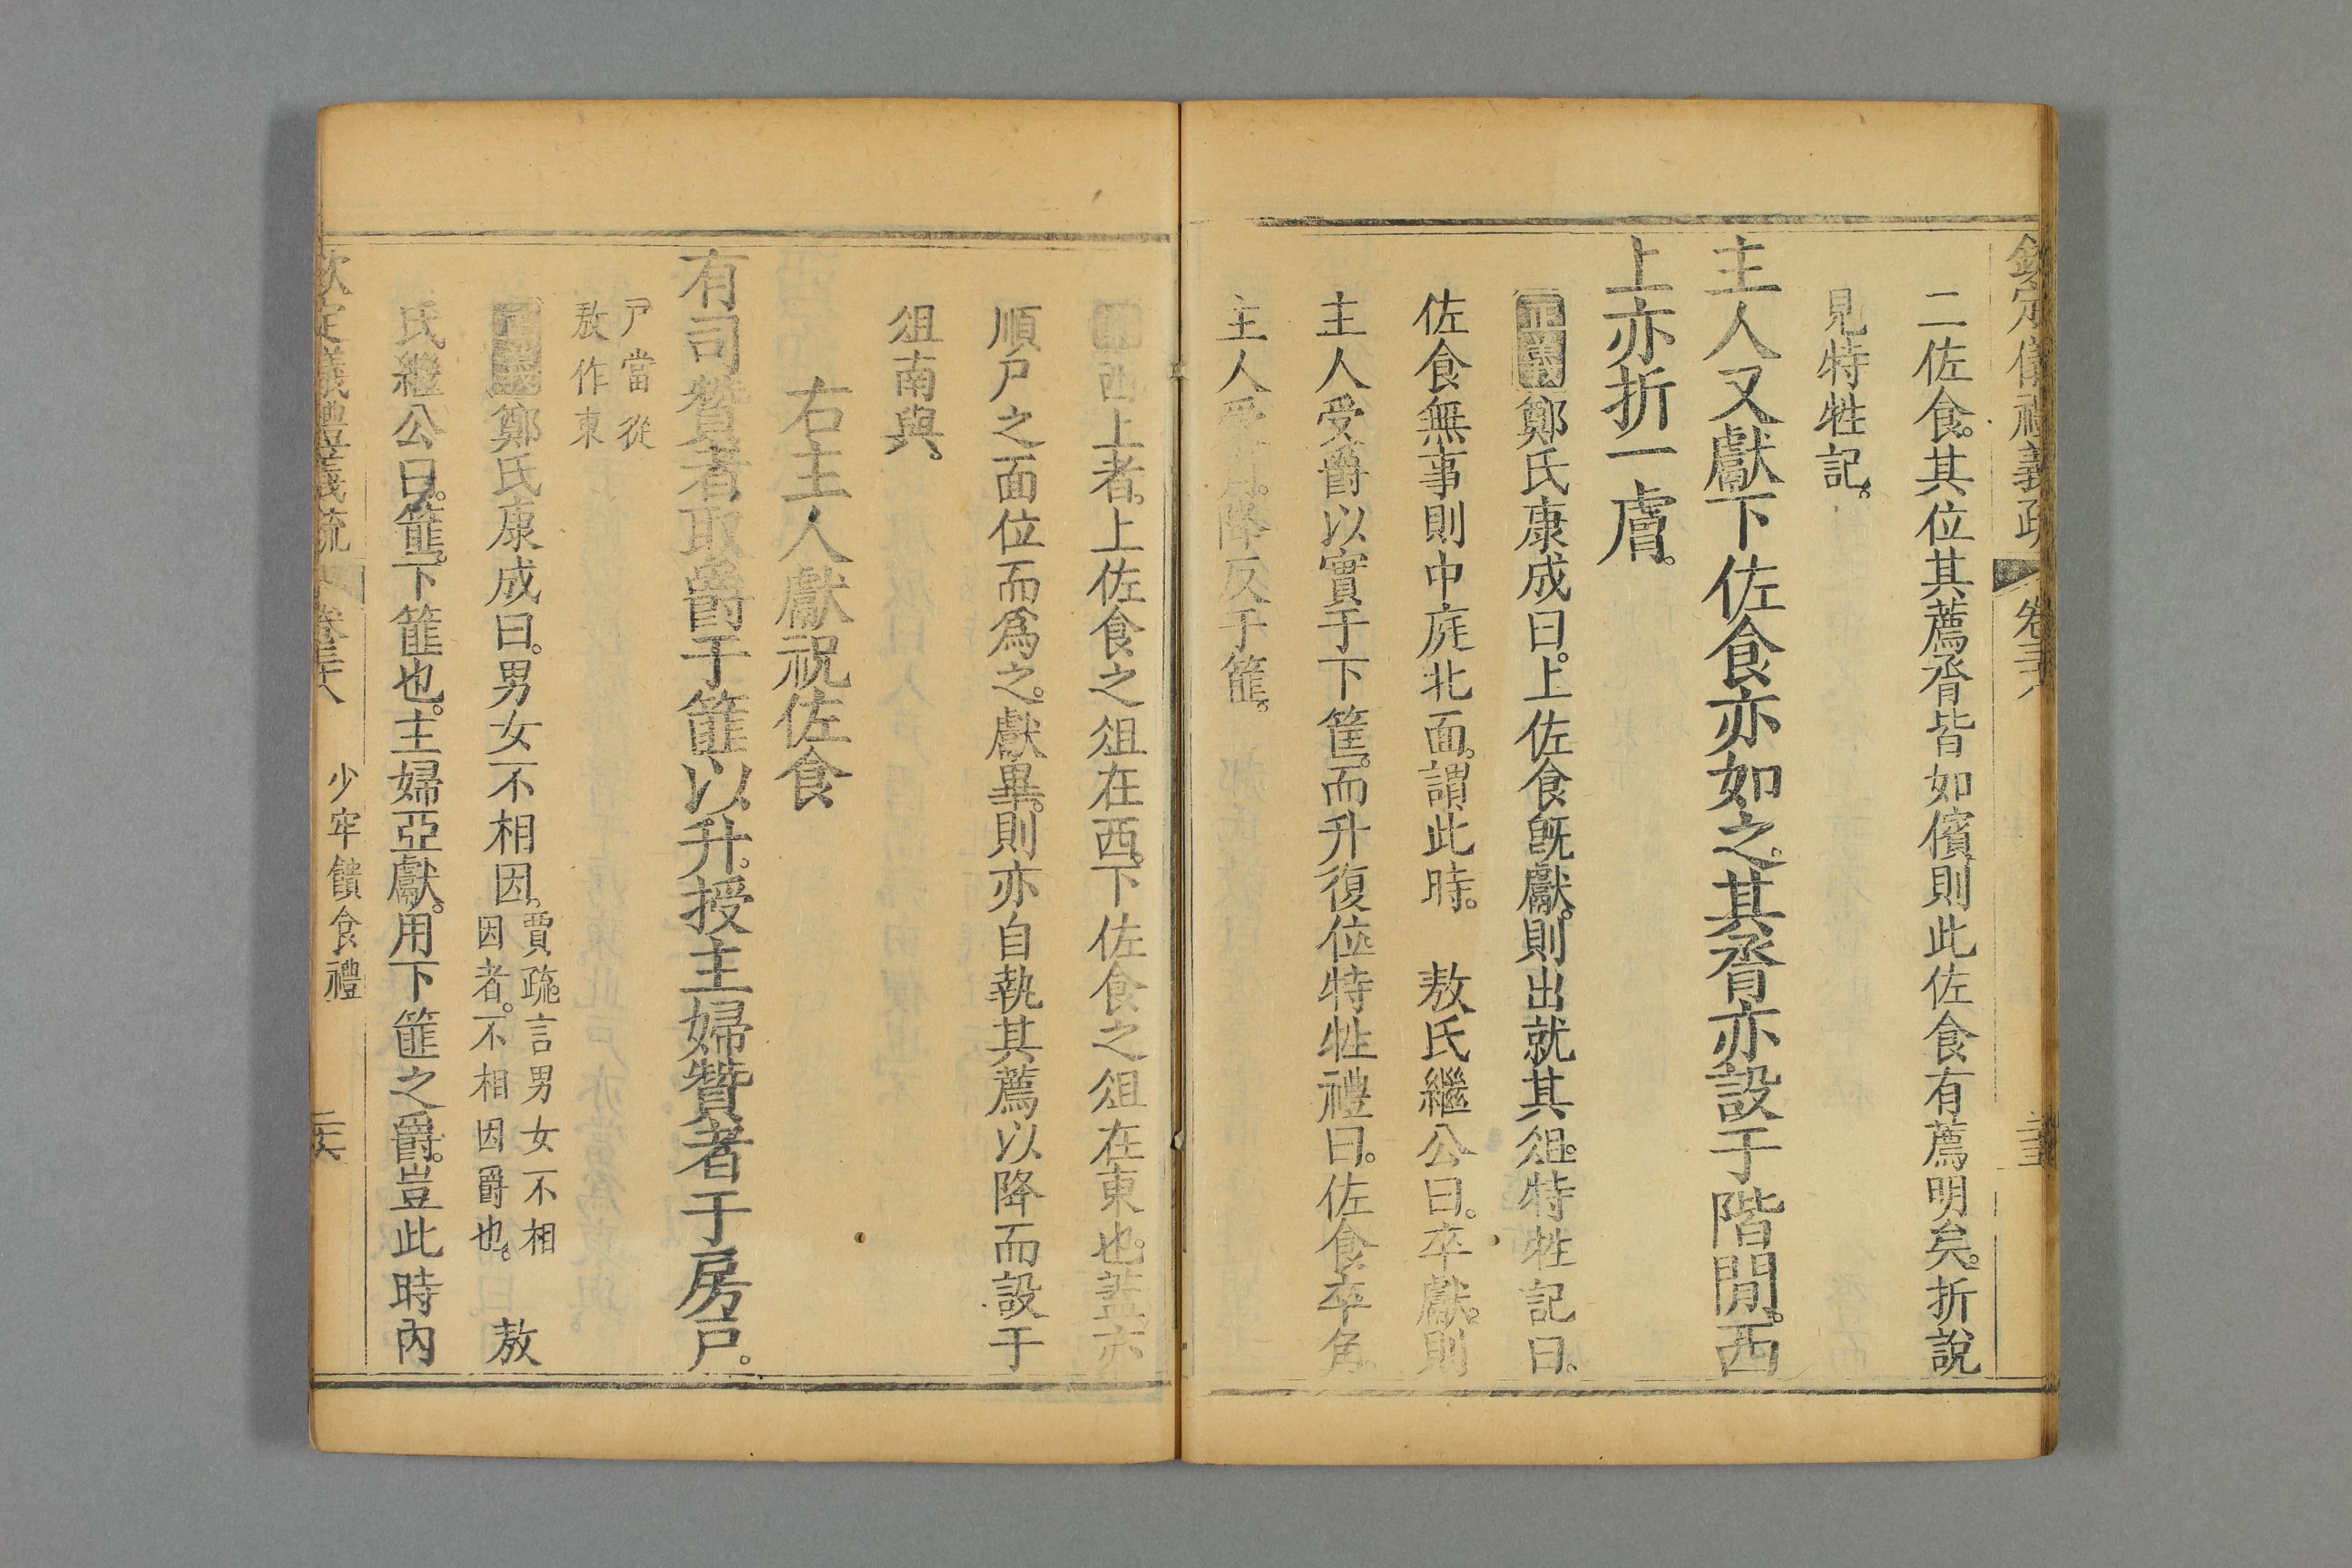 欽定儀禮義疏 卷三十八
二佐食。其位其薦脀皆如儐則此佐食有薦明矣。折說
見特牲記。
主人又獻下佐食亦如之。其脀亦設于階閒。西
上亦折一膚。
正義鄭氏康成曰。上佐食旣獻。則出就其俎。特牲記曰。
佐食無事則中庭北面。謂此時。 敖氏繼公曰。卒獻。則
主人受爵以實于下篚。而升復位。特牲禮曰。佐食卒角。
主人受角。降反于篚。
西上者。上佐食之俎在西。下佐食之俎在東也。蓋亦
順戶之面位而爲之。獻畢。則亦自執其薦以降而設于
俎南與。
右主人獻祝佐食
有司贊者取爵于篚以升。授主婦贊者于房戶。
戶當從
敖作東
正義鄭氏康成曰。男女不相因。賈疏。言男女不相
因者。不相因爵也。 敖
氏繼公曰。篚。下篚也。主婦亞獻。用下篚之爵。豈此時內
欽定儀禮義疏 卷三十八 少牢饋食禮